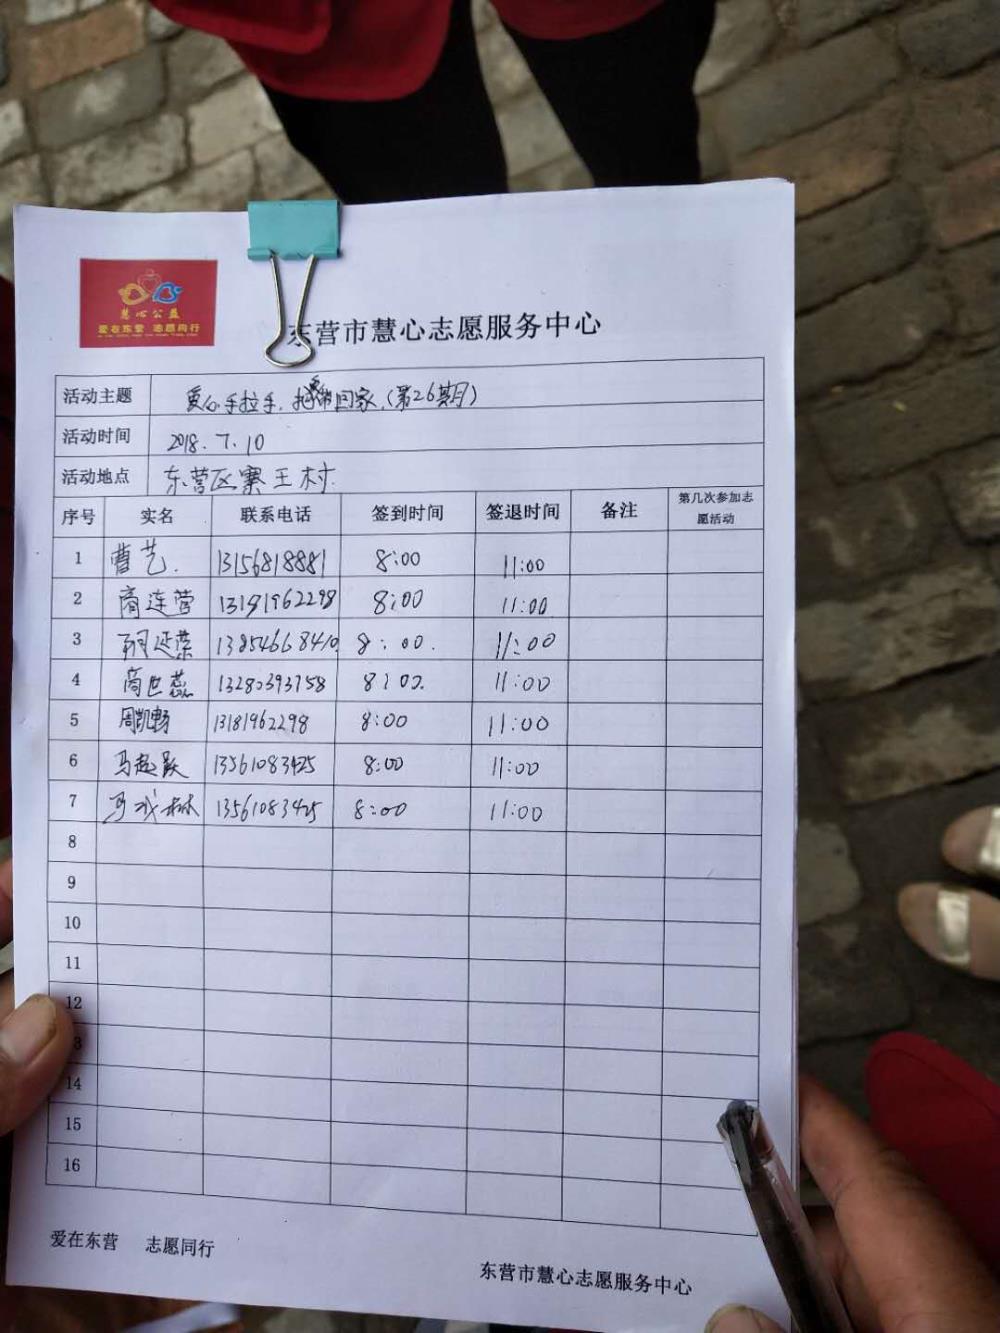 慧心公益
爱在东营 志愿同行
东营市慧心志愿服务中心
活动主题 爱心手拉手, 回家(第26期)
活动时间 2018.7.10
活动地点 东营区寨王村
序号 实名 联系电话 签到时间 签退时间 备注 第几次参加志
愿活动
1 曹艺. 13156818881 8:00 11:00
2 商连营 13181962298 8:00 11:00
3 13854668410 8:00. 11:00
4 商世蕊 13280393758 8:00. 11:00
5 周凯畅 13181962298 8:00 11:00
6 马超跃 13561083425 8:00 11:00
7 马成林 13561083425 8:00 11:00
8
9
10
11
12
3
14
15
16
爱在东营 志愿同行
东营市慧心志愿服务中心